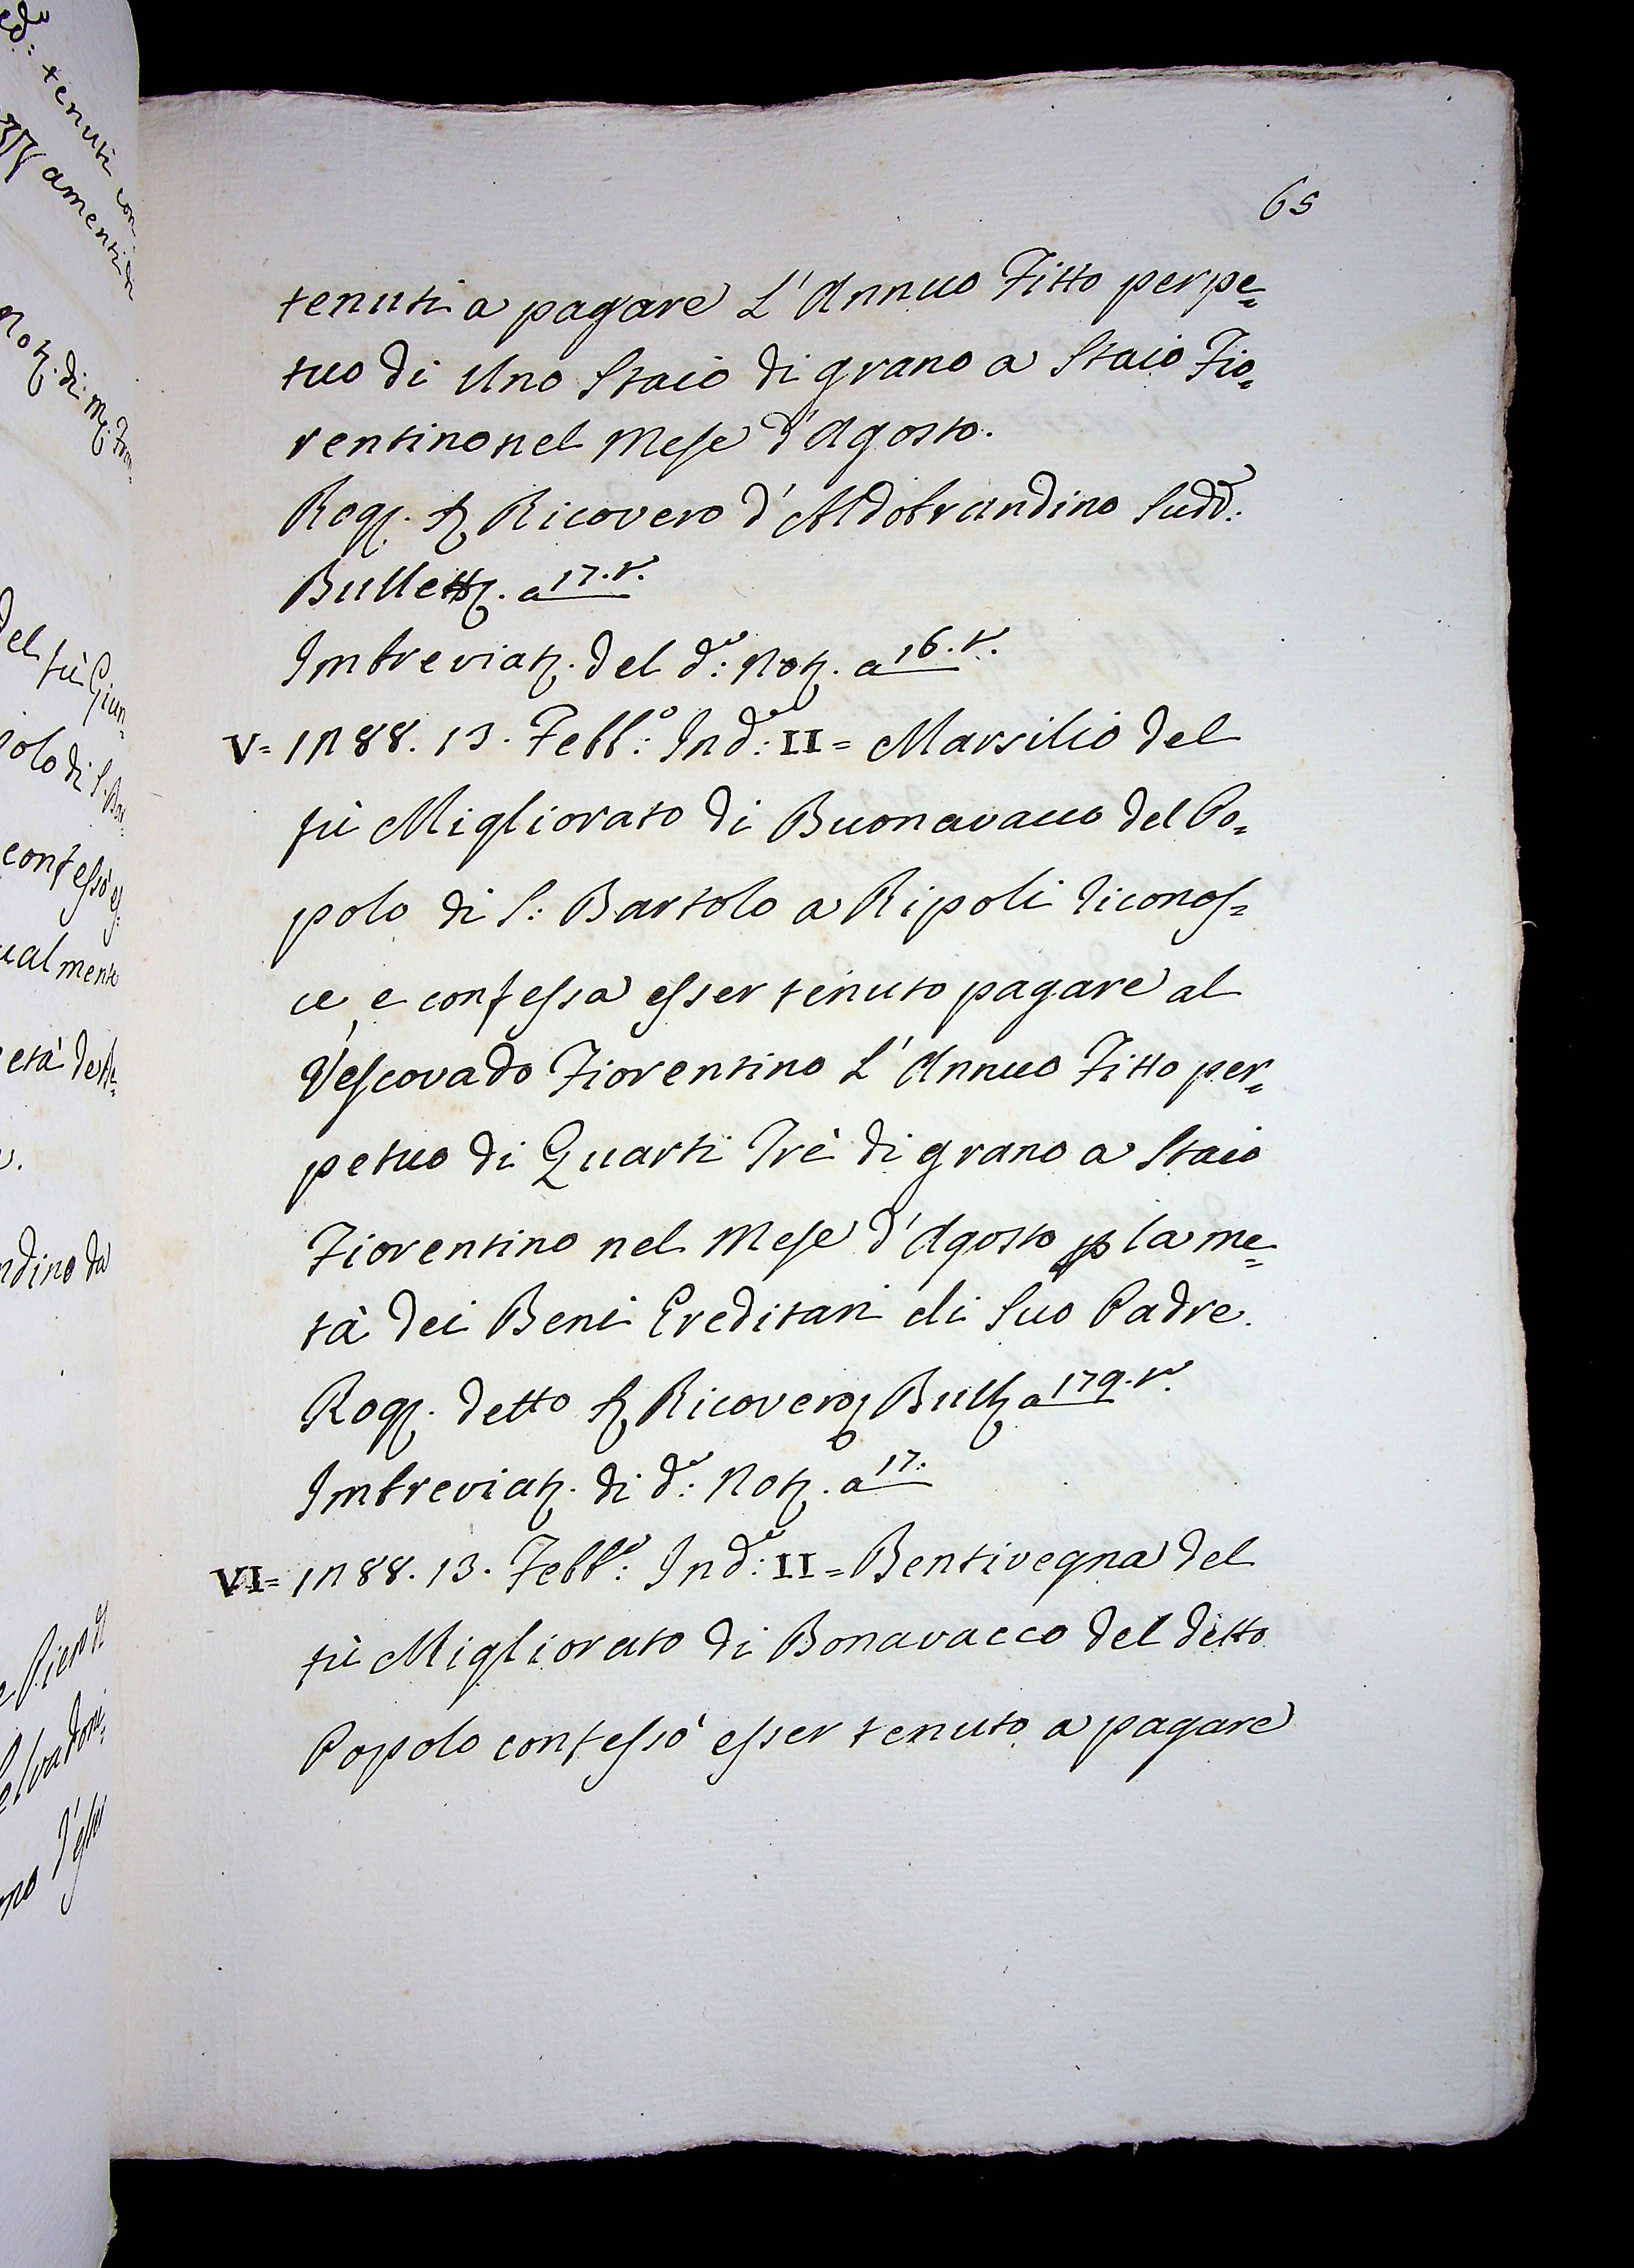 65
tenuti a pagare L'Annuo Fitto perpe=
tuo di Uno Staio di grano a Staio Fio=
rentino nel Mese d'Agosto.
Rog. Ricovero d'Aldobrandino Sudd:
Bullett. a 17. r.
Imbreviat. del d: Not. a 16. r.
V= 1288. 13. Febb: Ind: II= Marsilio del
fù Migliorato di Buonavacco del Po=
polo di S: Bartolo a Ripoli riconos=
ce, e confessa esser tenuto pagare al
Vescovado Fiorentino L'Annuo Fitto per=
petuo di Quarti Trè di grano a Staio
Fiorentino nel Mese d'Agosto p la me=
tà dei Beni Ereditari di Suo Padre.
Rog. detto Ricovero Bull a 179. r.
Imbreviat. di d: Not. a 17.
VI= 1288. 13. Febb: Ind: II= Bentivegna del
fù Migliorato di Bonavacco del detto
Popolo confessò esser tenuto a pagare